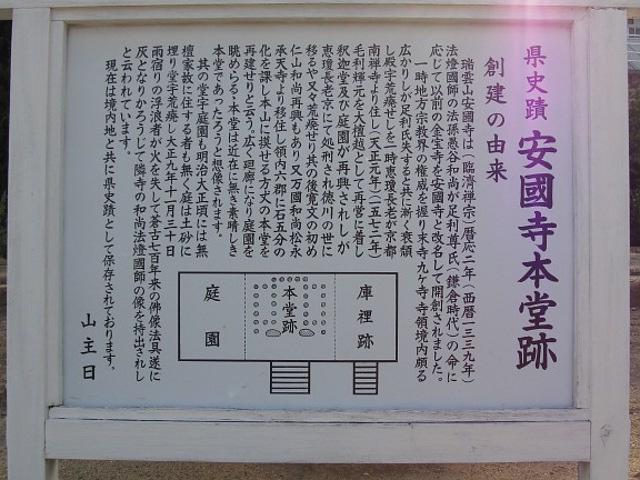 県史蹟 安國寺本堂跡
創建の由来
瑞雲山安國寺は(臨済禅宗)暦応二年(西暦一三三九年)
法燈國師の法孫愚谷和尚が足利尊氏(鎌倉時代)の命に
応じて以前の金宝寺を安國寺と改名して開創されました。
一時地方宗教界の権威を握り末寺九ヶ寺寺領境内頗る
広かりしが足利氏失すると共に漸く衰頽
し殿宇荒廃せしを一時恵瓊長老が京都
南禅寺より住し(天正元年)(一五七二年)
毛利輝元を大檀越として再営に着し
釈迦堂及び庭園が再興されしが
恵瓊長老京にて処刑され徳川の世に
移るや又々荒廃せり其の後寛文の初め
仁山和尚再興もあり又万國和尚松永
承天寺より移住し領内六郡に石五分の
化を課し本山に摸せる方丈の本堂を
再建せりと云う。広く廻廊になり庭園を
眺めらる・本堂は近在に無き素晴しき
本堂であったろうと想像されます。
其の堂宇庭園も明治大正頃には無
檀家故に住する者も無く庭は土砂に
埋り堂宇荒廃し大正九年十一月三十日
雨宿りの浮浪者が火を失して蒼古七百年来の佛像法具遂に
灰となりかろうじて隣寺の和尚法燈國師の像を持出されし
と云われています。
現在は境内地と共に県史蹟として保存されております。
山主曰
庫裡跡
本堂跡
庭園